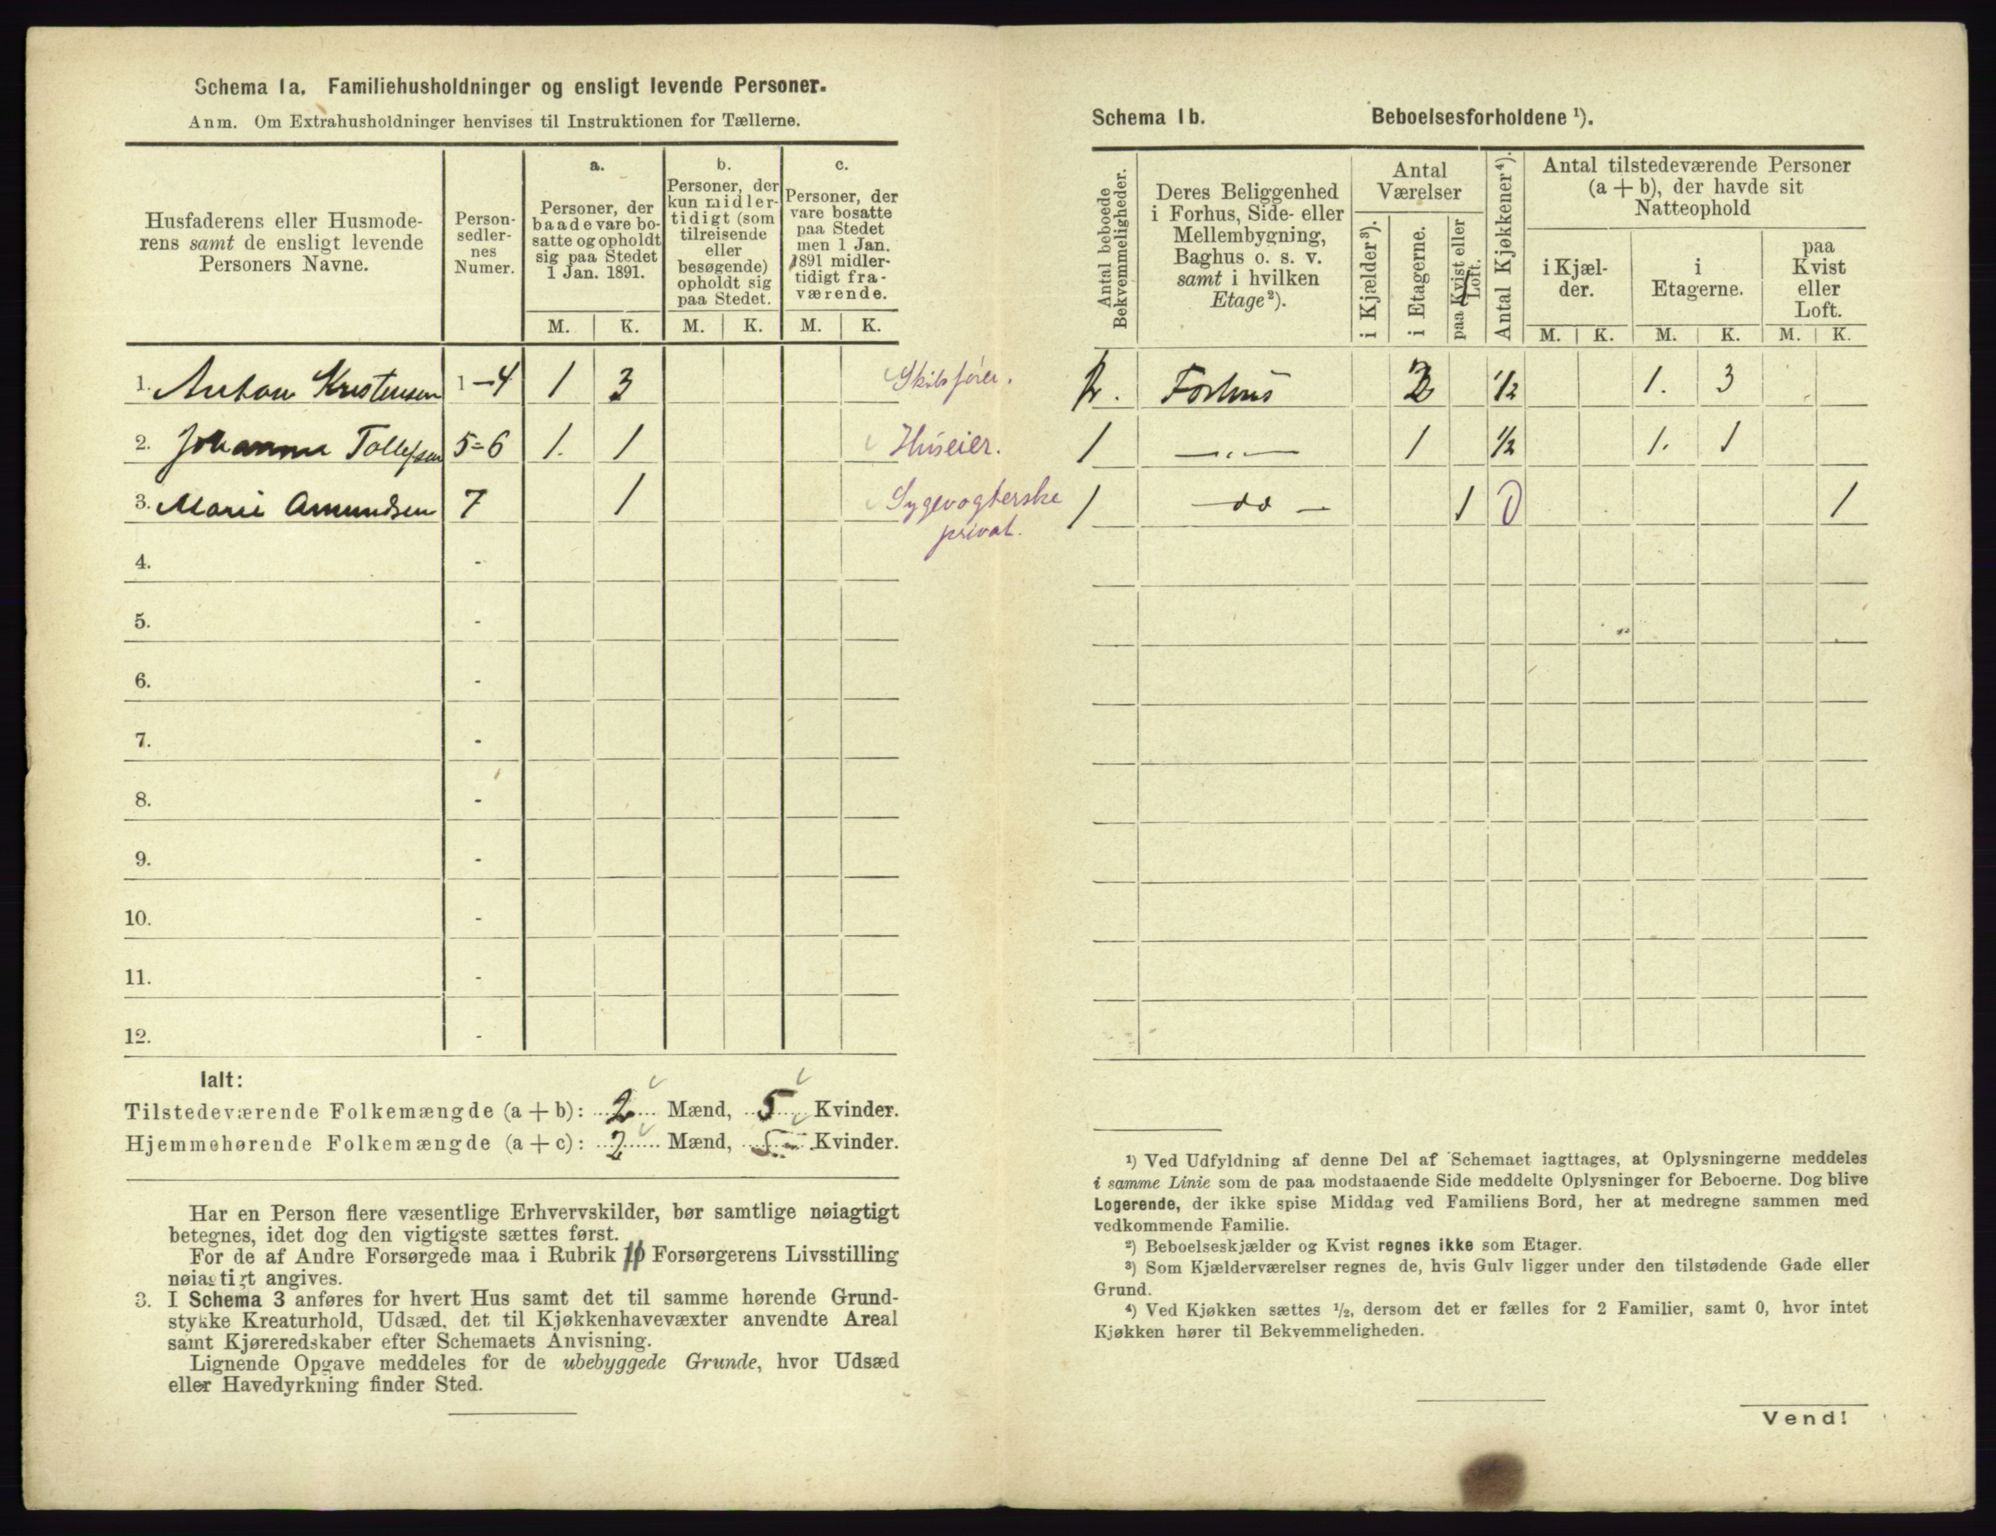 Schema 1a. Familiehusholdninger og ensligt levende Personer.
Anm. Om Extrahusholdninger henvises til Instruktionen for Tællerne.
Husfaderens eller Husmode-
rens samt de ensligt levende
Personers Navne.
Person-
sedler-
nes
Numer.
a.
Personer, der
baade vare bo-
satte og opholdt
sig paa Stedet
1 Jan. 1891.
b.
Personer, der
kun midler-
tidigt (som
tilreisende
eller
besøgende)
opholdt sig
paa Stedet.
c.
Personer, der
vare bosatte
paa Stedet
men 1 Jan.
1891 midler-
tidigt fra-
værende.
M. K. M. K. M. K.
1. Anton Kristensen 1-4 1 3 Skibsfører.
2. Johanne Tollefsen 5-6 1. 1 Huseier.
3. Marie Amundsen 7 1 Sygevogterske
privat.
4. -
5. -
6. -
7. -
8. -
9. -
10. -
11. -
12. -
Ialt:
Tilstedeværende Folkemængde (a + b): 2 Mænd, 5 Kvinder.
Hjemmehørende Folkemængde (a + c): 2 Mænd, 5 Kvinder.
Har en Person flere væsentlige Erhvervskilder, bør samtlige nøiagtigt
betegnes, idet dog den vigtigste sættes først.
For de af Andre Forsørgede maa i Rubrik Forsørgerens Livsstilling
nøiagtigt angives.
3. I Schema 3 anføres for hvert Hus samt det til samme hørende Grund-
stykke Kreaturhold, Udsæd, det til Kjøkkenhavevæxter anvendte Areal
samt Kjøreredskaber efter Schemaets Anvisning.
Lignende Opgave meddeles for de ubebyggede Grunde, hvor Udsæd
eller Havedyrkning finder Sted.
Schema 1b. Beboelsesforholdene ¹).
Antal beboede
Bekvemmeligheder.
Deres Beliggenhed
i Forhus, Side- eller
Mellembygning,
Baghus o. s. v.
samt i hvilken
Etage ²).
Antal
Værelser
i Kjælder ³).
i Etagerne.
paa Kvist eller
Loft.
Antal Kjøkkener ⁴).
Antal tilstedeværende Personer
(a + b), der havde sit
Natteophold
i Kjæl-
der.
i
Etagerne.
paa
Kvist
eller
Loft.
M. K. M. K. M. K.
Forhus 2 1/2 1. 3
1 -"- 1 1/2 1. 1
1 - do - 1 0 1
¹) Ved Udfyldning af denne Del af Schemaet iagttages, at Oplysningerne meddeles
i samme Linie som de paa modstaaende Side meddelte Oplysninger for Beboerne. Dog blive
Logerende, der ikke spise Middag ved Familiens Bord, her at medregne sammen med
vedkommende Familie.
²) Beboelseskjælder og Kvist regnes ikke som Etager.
³) Som Kjælderværelser regnes de, hvis Gulv ligger under den tilstødende Gade eller
Grund.
⁴) Ved Kjøkken sættes ½, dersom det er fælles for 2 Familier, samt 0, hvor intet
Kjøkken hører til Bekvemmeligheden.
Vend!